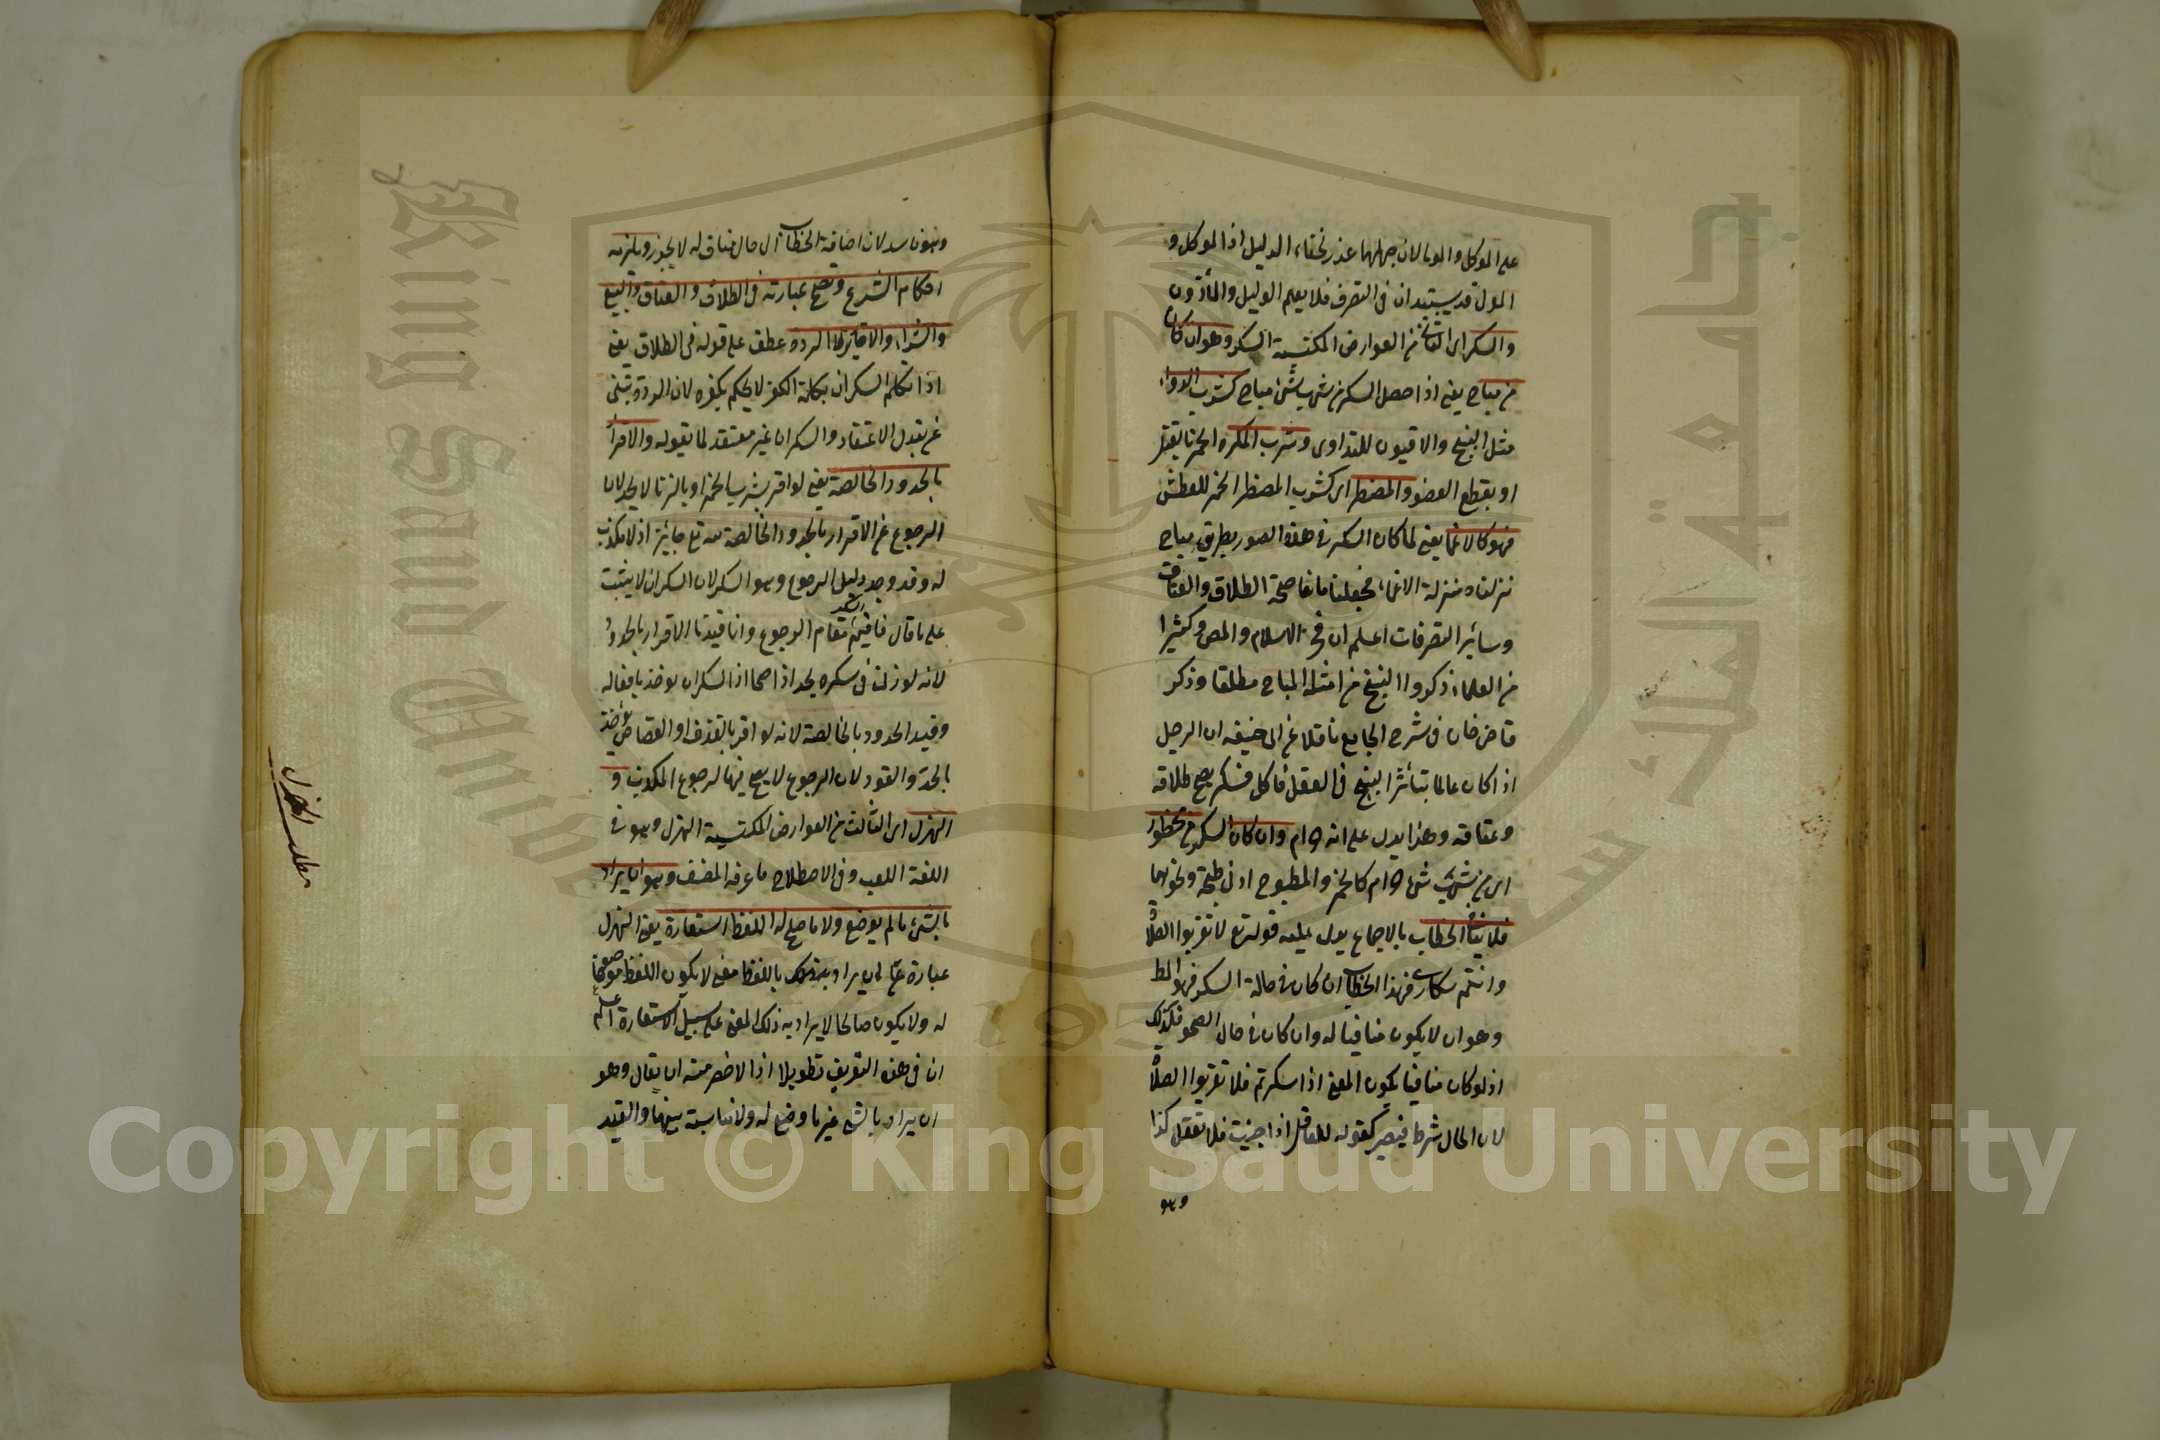 على الموكل والمولى لان جهلهما عذر لخفاء الدليل اذ الموكل و
المولى قد يستبدان في التصرف فلا يعلم الوكيل والمأذون
والسكر اى الثانى من العوارض المكتسبة السكر وهو ان كان
من مباح يعنى اذا حصل السكر من شرب شئ مباح كشرب الدواء
مثل البنج والافيون للتداوى وشرب المكره الخمر بالقتل
او بقطع العضو والمضطر اى كشرب المضطر الخمر للعطش
فهو كالاغماء يعنى لما كان السكر فى هذه الصور بطريق مباح
نزلناه منزلة الاغماء فجعلناه مانعا صحة الطلاق والعتاق
وسائر التصرفات اعلم ان فخر الاسلام والمص وكثيرا
من العلماء ذكروا البنج من امثلة المباح مطلقا وذكر
قاضى خان فى شرح الجامع ناقلا عن ابى حنيفه ان الرجل
اذا كان عالما بتأثير البنج فى العقل فاكل فسكر يصح طلاقه
وعتاقه وهذا يدل على انه حرام وان كان السكر من محظور
اى من شرب شئ حرام كالخمر والمطبوخ ادنى طبخة ونحوهما
فلا ينافى الخطاب بالاجماع يدل عليه قوله تع لا تقربوا الصلاة
وانتم سكارى فهذا الخطاب ان كان فى حالة السكر فهو المط
وهو ان لا يكون منافيا له وان كان فى حال الصحو فكذلك
اذ لو كان منافيا يكون المعنى اذا سكرتم فلا تقربوا الصلاة
لان الحال شرط فيصير كقوله للعاقل اذا جننت فلا تفعل كذا
وهو
وهو فاسد لان اضافة الخطاب الى حال مناف له لا يجوز ويلزمه
احكام الشرع وتصح عبارته فى الطلاق والعتاق والبيع
والشراء والاقارير لا الردة عطف على قوله فى الطلاق يعنى
اذا تكلم السكران بكلمة الكفر لا يحكم بكفره لان الردة تبتنى
عن تبدل الاعتقاد والسكران غير معتقد لما يقوله والاقرار
بالحدود الخالصة يعنى لو اقر بشرب الخمر او بالزنا لا يحد لان
الرجوع عن الاقرار بالحدود الخالصة لله تع جائز اذ لا مكذب
له وقد وجد دليل الرجوع وهو السكر لان السكران لا يثبت
على ما قال فاقيم السكر مقام الرجوع وانما قيدنا الاقرار بالحدود
لانه لو زنى فى سكره يحد اذا صحا اذ السكران يؤخذ بافعاله
وقيد الحدود بالخالصة لانه لو اقر بالقذف او القصاص يؤخذ
بالحد والقود لان الرجوع لا يصح فيهما لوجود المكذب و
الهزل اى الثالث من العوارض المكتسبة الهزل وهو فى
اللغة اللعب وفى الاصطلاح ما عرفه المصنف وهو ان يراد
بالشئ ما لم يوضع ولا ما صلح له اللفظ استعارة يعنى الهزل
عبارة عن ان يراد باللفظ معنى لا يكون اللفظ موضوعا
له ولا يكون صالحا لا يراد به ذلك المعنى على سبيل الاستعارة اعلم
ان فى هذه التعريف تطويلا اذ الاخصر منه ان يقال وهو
ان يراد بالشئ غير ما وضع له ولا مناسبة بينهما والقيد
مطلب الهزل
Copyright © King Saud University